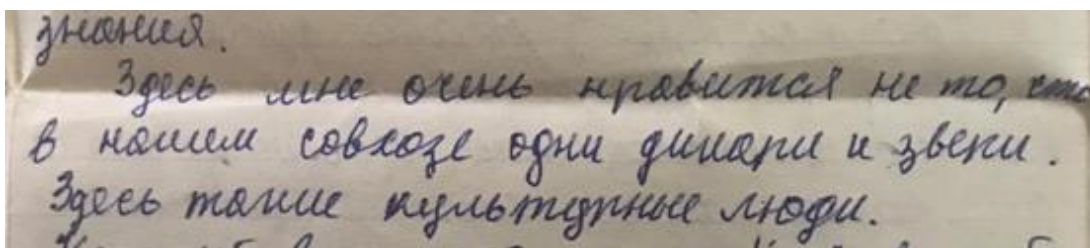 знания.
Здесь мне очень нравится не то, что
в нашем совхозе одни дикари и звери.
Здесь такие культурные люди.